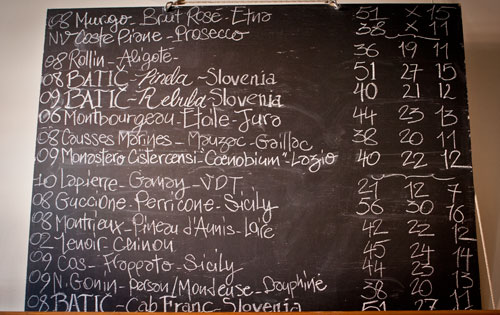 08 Murgo - Brut Rosé - Etna 51 x 15
NV Coste Piane - Prosecco 38 x 11
08 Rollin - Aligoté - 36 19 11
08 BATIC - Pinela - Slovenia 51 27 15
09 BATIC - Rebula - Slovenia 40 21 12
06 Montbourgeau - Etoile - Jura 44 23 13
08 Causses Marines - Mauzac - Gaillac 38 20 11
09 Monastero Cistercensi - "Coenobium" - Lazio 40 22 12
10 Lapierre - Gamay - VDT 21 12 7
08 Guccione - Perricone - Sicily 56 30 16
08 Montrieux - Pineau d'Aunis - Loire 42 22 12
02 Lenoir - Chinon 45 24 14
09 Cos - Frappato - Sicily 44 23 13
09 N. Gonin - Persan/Mondeuse - Dauphiné 38 20 11
08 BATIC - Cab Franc - Slovenia 51 27